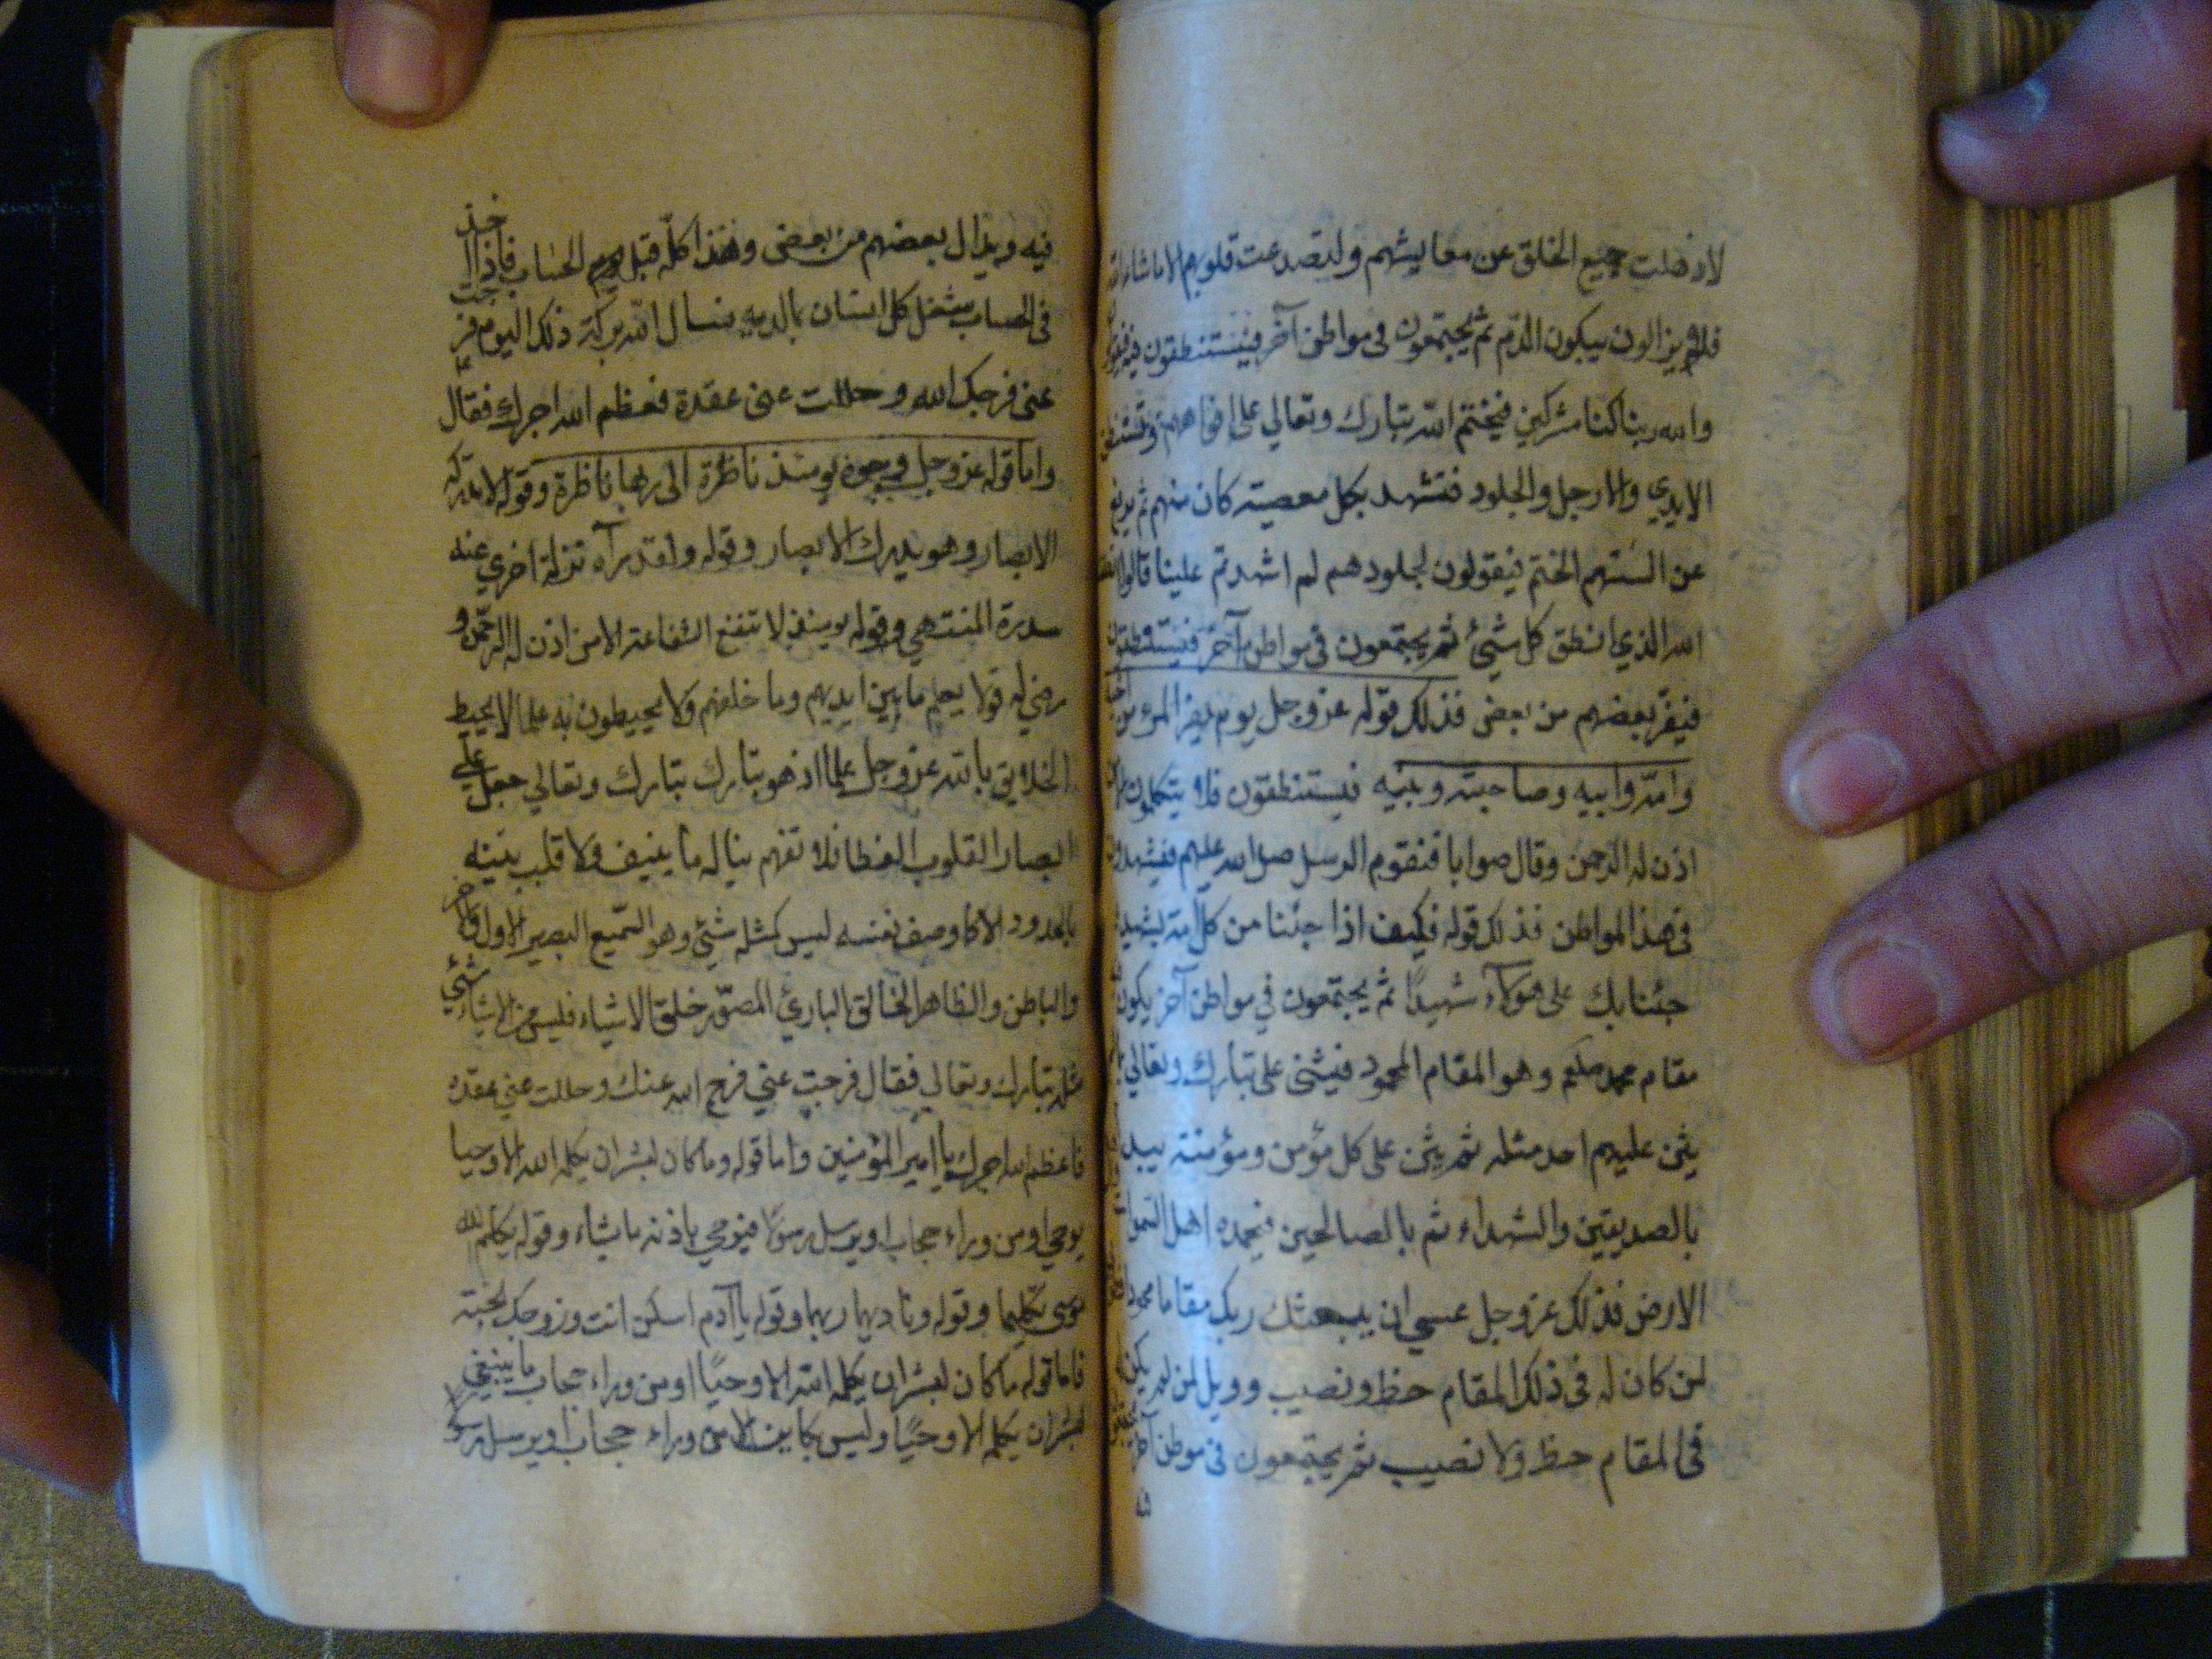 لاذهلت جميع الخلق عن معايشهم ولتصدعت قلوبهم الا ماشاء الله
فلا يزالون يبكون الدم ثم يجتمعون فى مواطن آخر فيستنطقون فيه
والله ربنا ما كنا مشركين فيختم الله تبارك وتعالي على افواههم
الايدي والارجل والجلود فتشهد بكل معصية كان منهم ثم يرفع
عن السنتهم الختم فيقولون لجلودهم لم اشهدتم علينا قالوا انطقنا
الله الذي انطق كل شئ ثم يجتمعون فى مواطن آخر فيستنطقون
فيفر بعضهم من بعض فذلك قوله عزوجل يوم يفر المرء من
وامه وابيه وصاحبته وبنيه فيستنطقون فلا يتكلمون
اذن له الرحمن وقال صوابا فتقوم الرسل صلى الله عليهم فيشهدون
فى هذا المواطن فذلك قوله فكيف اذا جئنا من كل امة بشهيد
جئنا بك على هؤلاء شهيدًا ثم يجتمعون في مواطن آخر يكون
مقام محمد صلعم وهو المقام المحمود فيثنى على تبارك وتعالي
يثن عليهم احد مثله ثم يثنى على كل مؤمن ومؤمنة يبدا
بالصديقين والشهداء ثم بالصالحين فيحمده اهل السموات
الارض فذلك عزوجل عسي ان يبعثك ربك مقاما محمودا
لمن كان له فى ذلك المقام حظ ونصيب وويل لمن لم يكن
فى المقام حظ ولا نصيب ثم يجتمعون فى موطن آخر
فيه ويذال بعضهم من بعض وهذا كله قبل يوم الحساب فاذا اخذ
فى الحساب شغل كل انسان بما لديه نسال الله بركة ذلك اليوم فرجت
عنى فرجك الله وحللت عنى عقدة فعظم الله اجرك فقال
واما قوله عزوجل وجوه يومئذ ناظرة الى ربها ناظرة وقوله لا تدركه
الابصار وهو يدرك الابصار وقوله ولقد رآه نزلة اخري عند
سدرة المنتهي وقوله يومئذ لا تنفع الشفاعة الا من اذن له الرحمن و
رضي له قولا يعلم ما بين ايديهم وما خلفهم ولا يحيطون به علما لا يحيط
الخلايق بالله عزوجل علما اذ هو تبارك تبارك وتعالي جعل علي
ابصار القلوب الغطا فلا تفهم يناله ولا قلب
بالحدود الا كما وصف نفسه ليس كمثله شئ وهو السميع البصير الاول والاخر
والباطن والظاهر الخالق البارئ المصور خلق الاشياء فليس من الاشياء شئ
مثله تبارك وتعالي فقال فرجت عني فرج الله عنك وحللت عني عقده
فاعظم الله اجرك يا امير المؤمنين واما قوله وما كان لبشر ان يكلمه الله الا وحيا
يوحي او من وراء حجاب او يرسل رسولا فيوحي باذنه ما يشاء وقوله يكلم الله
موسى تكليما وقوله وناديهما ربهما وقوله يا آدم اسكن انت وزوجك الجنة
فاما قوله ما كان لبشر ان يكلمه الله الا وحيًا او من وراء حجاب ما ينبغي
لبشر ان يكلمه الا وحيًا وليس بكاين الا من وراء حجاب او يرسل رسولا